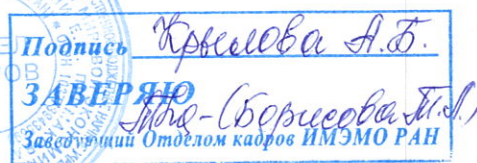 Подпись Крылова А.Б.
ЗАВЕРЯЮ
(Борисова Т.А.)
Заведующий Отделом кадров ИМЭМО РАН